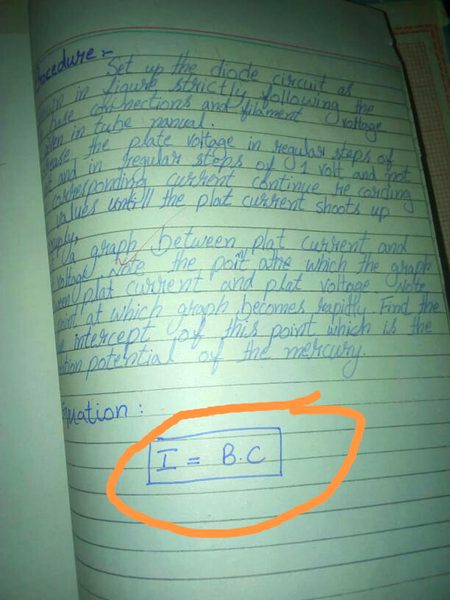 ocedure:-
Set up the diode circuit as
in figure strictly following the
connections and filament voltage
in tube manual.
the plate voltage in regular steps of
and in regular steps of 1 volt and not
corresponding current continue re cording
values untill the plat current shoots up
a graph between plat current and
voltage Note the point the which the graph
plat current and plat voltage Note
at which graph becomes rapitly. Find the
intercept of this point which is the
potential of the mercury.
uation :
I = B.C